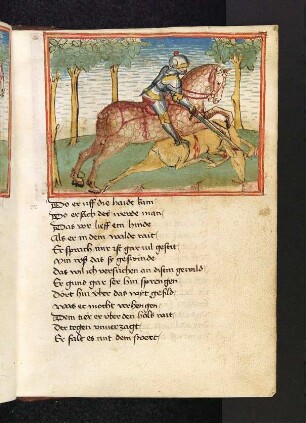 Do er uff die haide kam
Do ersach der werde man
Das vor lieff ein hinde
Als er in dem walde rait
Er sprach mir ist gar vil geseit
Min roß das sy geswinde
Das wil ich versuchen an disem gewild
Er gund gar ser hin sprengen
Dort hin uber das wyt gefild
Was er mocht verhengen
Dem tier er uber den hals rait
Der degen unverzagt
Er falt es mit dem swert